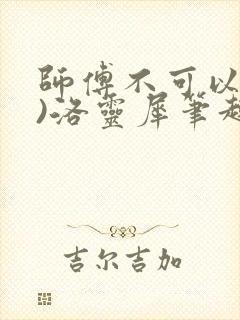 師傅不可以
)洛靈犀筆趣
吉尔吉加